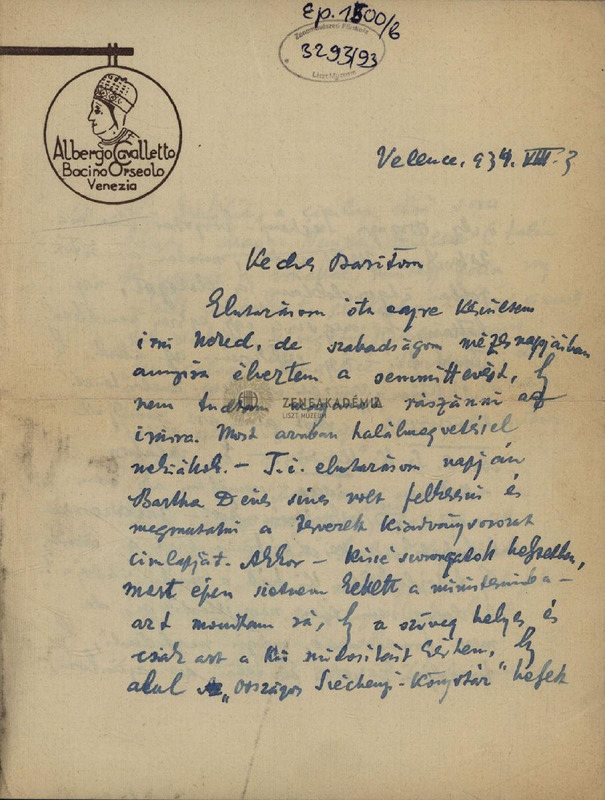 Ep. 1500/6
Zeneművészeti Főiskola
3293/93
Liszt Múzeum
Albergo Cavalletto
Bacino Orseolo
Venezia
Velence, 934. VIII. 3
Kedves Barátom
Elutazásom óta egyre készültem
írni Neked, de szabadságom mézesnapjaiban
annyira élveztem a semmittevést, hogy
nem tudtam magamat rászánni az
írásra. Most azonban halálmegvetéssel
nekiülök. – T.i. elutazásom napján
Bartha Dénes szives volt felkeresni és
megmutatni a tervezett kiadványsorozat
címlapját. Akkor – kissé szorongatott helyzetben,
mert éppen sietnem kellett a minisztériumba –
azt mondtam rá, hogy a szöveg helyes és
csak azt a kis módosítást kértem, hogy
alul az „Országos Széchényi-Könyvtár" helyett
ZENEAKADÉMIA
LISZT MÚZEUM